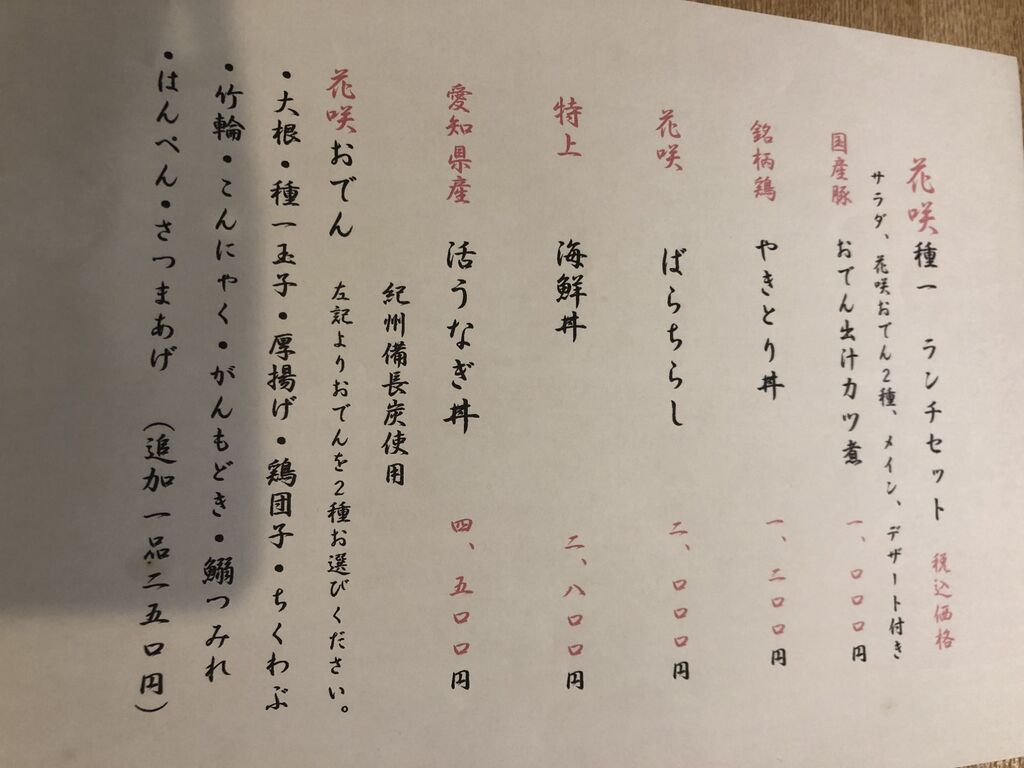 花咲種一 ランチセット 税込価格
サラダ、花咲おでん2種、メイン、デザート付き
国産豚 おでん出汁カツ煮 一、〇〇〇円
銘柄鶏 やきとり丼 一、二〇〇円
花咲 ばらちらし 二、〇〇〇円
特上 海鮮丼 二、八〇〇円
愛知県産 活うなぎ丼 四、五〇〇円
紀州備長炭使用
花咲おでん 左記よりおでんを2種お選びください。
・大根・種一玉子・厚揚げ・鶏団子・ちくわぶ
・竹輪・こんにゃく・がんもどき・鰯つみれ
・はんぺん・さつまあげ (追加一品二五〇円)